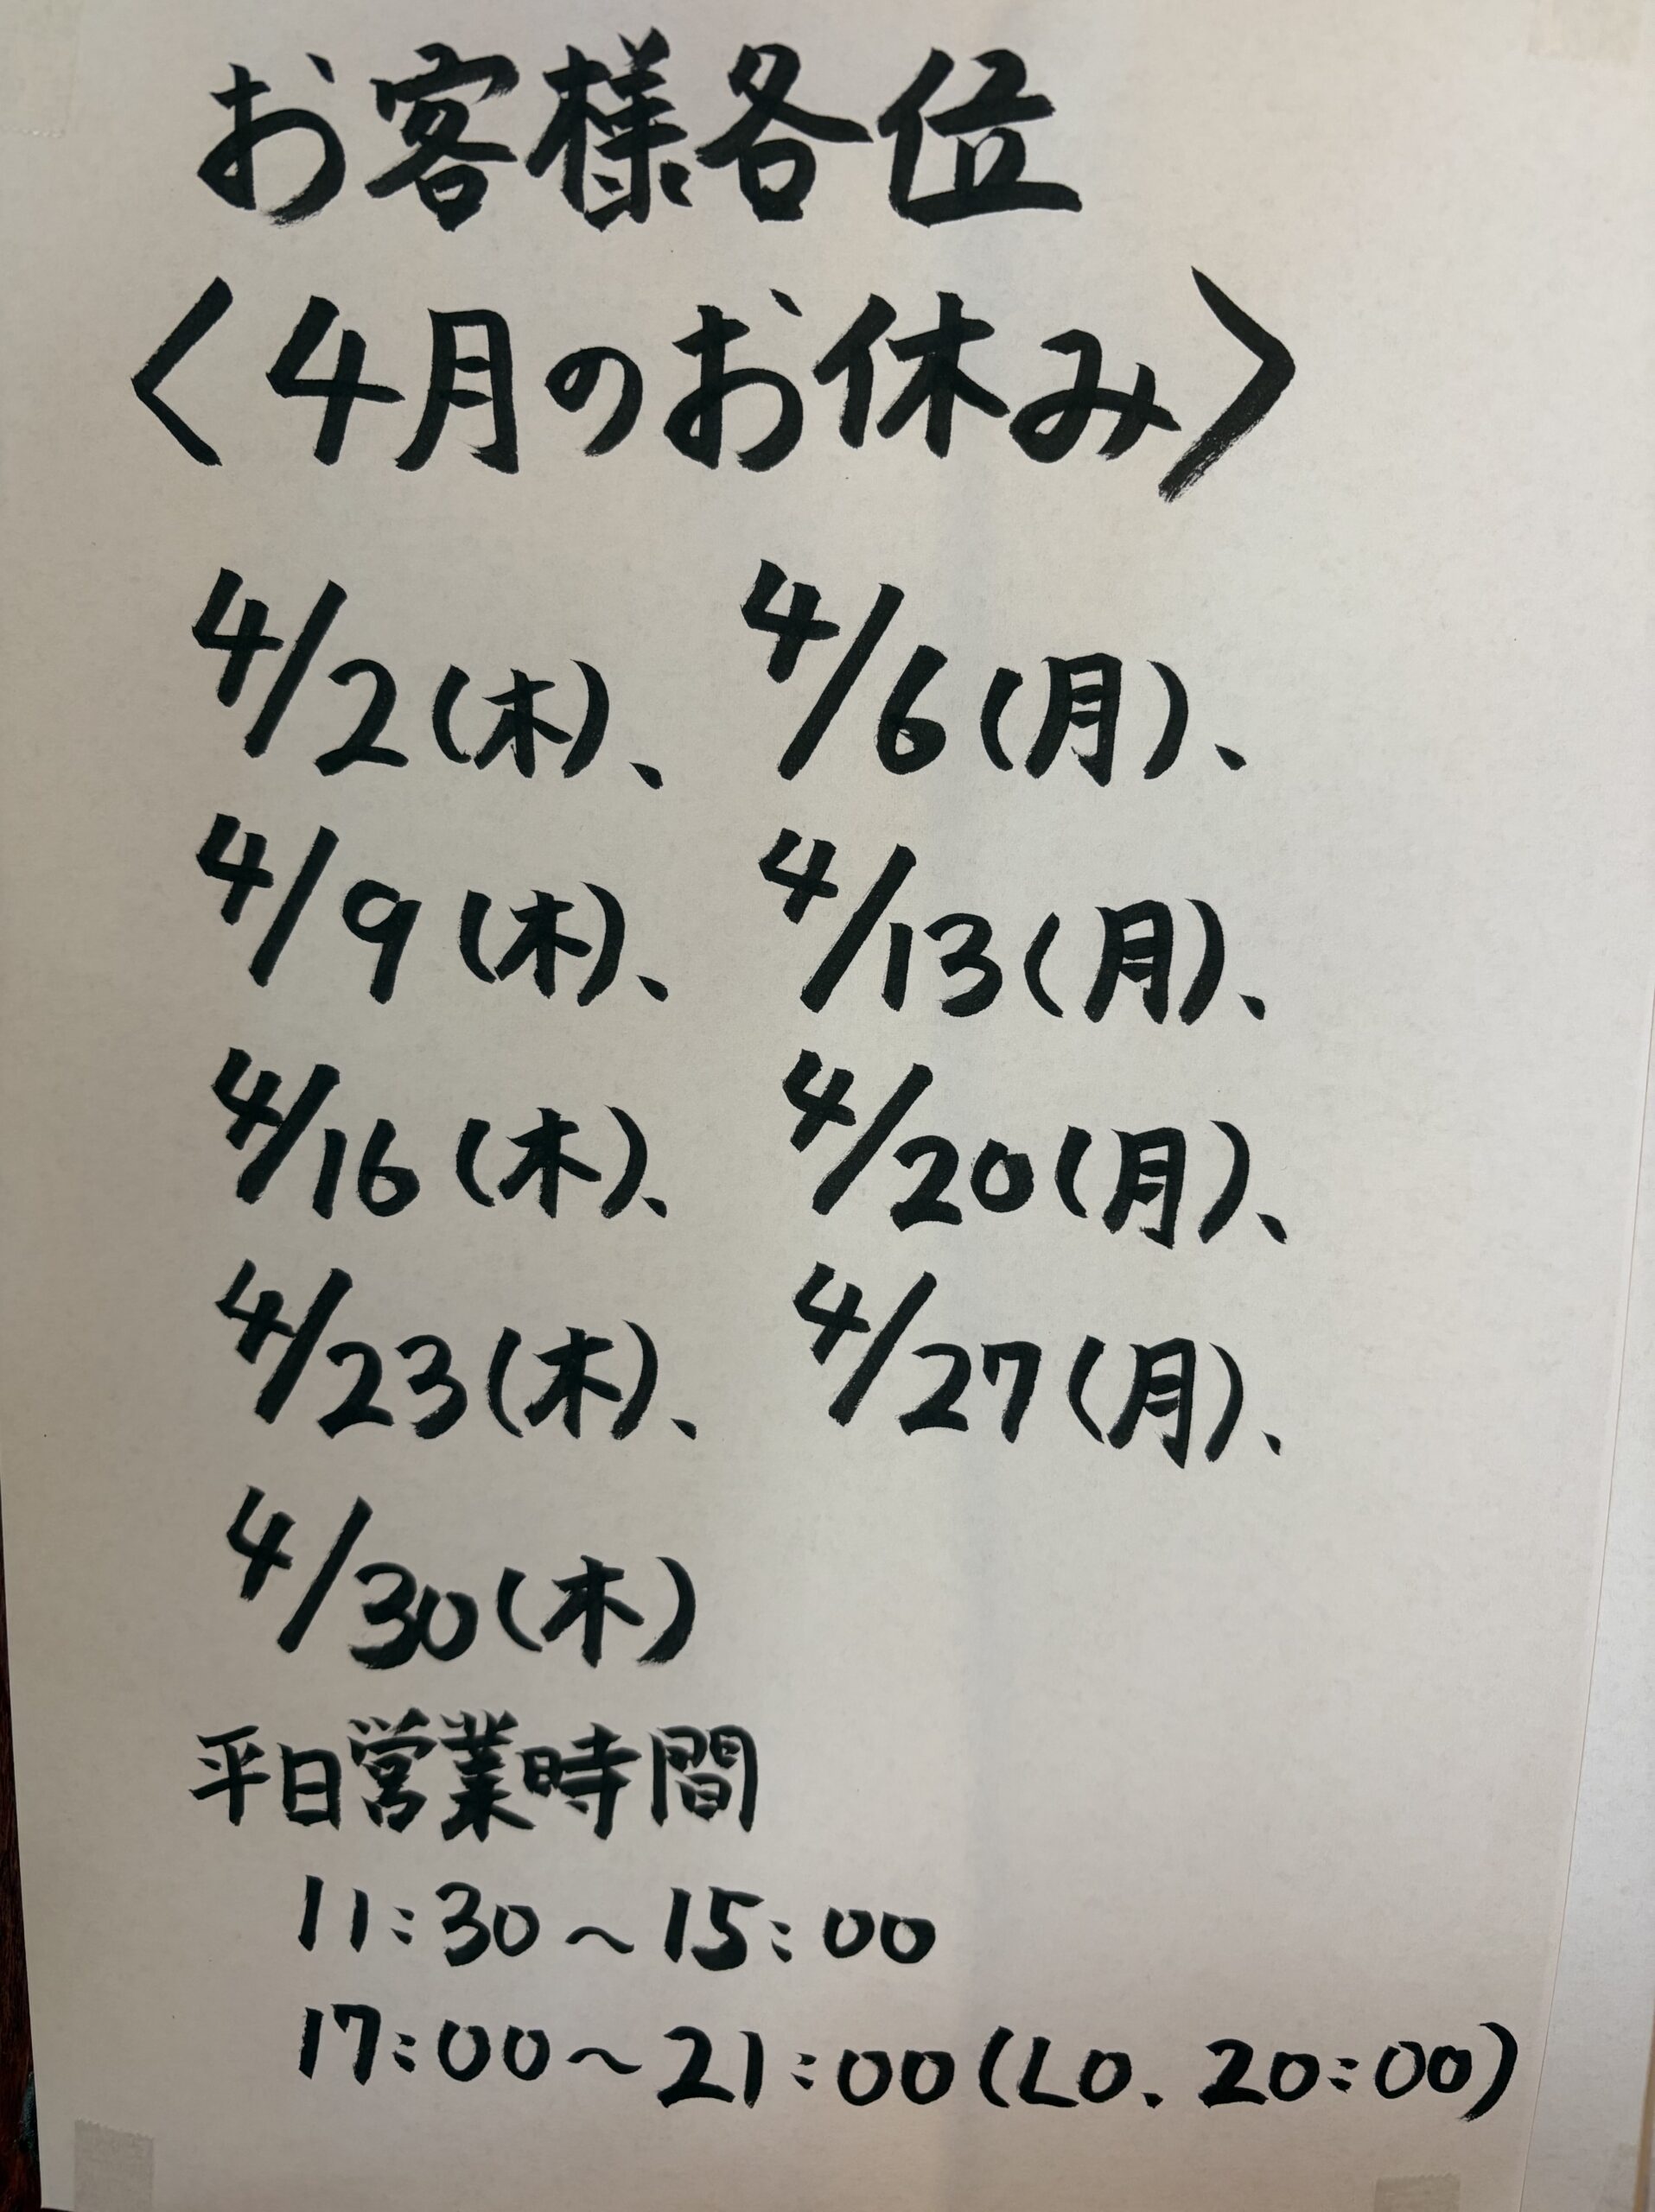 お客様各位
〈4月のお休み〉
4/2(木)、4/6(月)、
4/9(木)、4/13(月)、
4/16(木)、4/20(月)、
4/23(木)、4/27(月)、
4/30(木)
平日営業時間
11:30～15:00
17:00～21:00(LO.20:00)